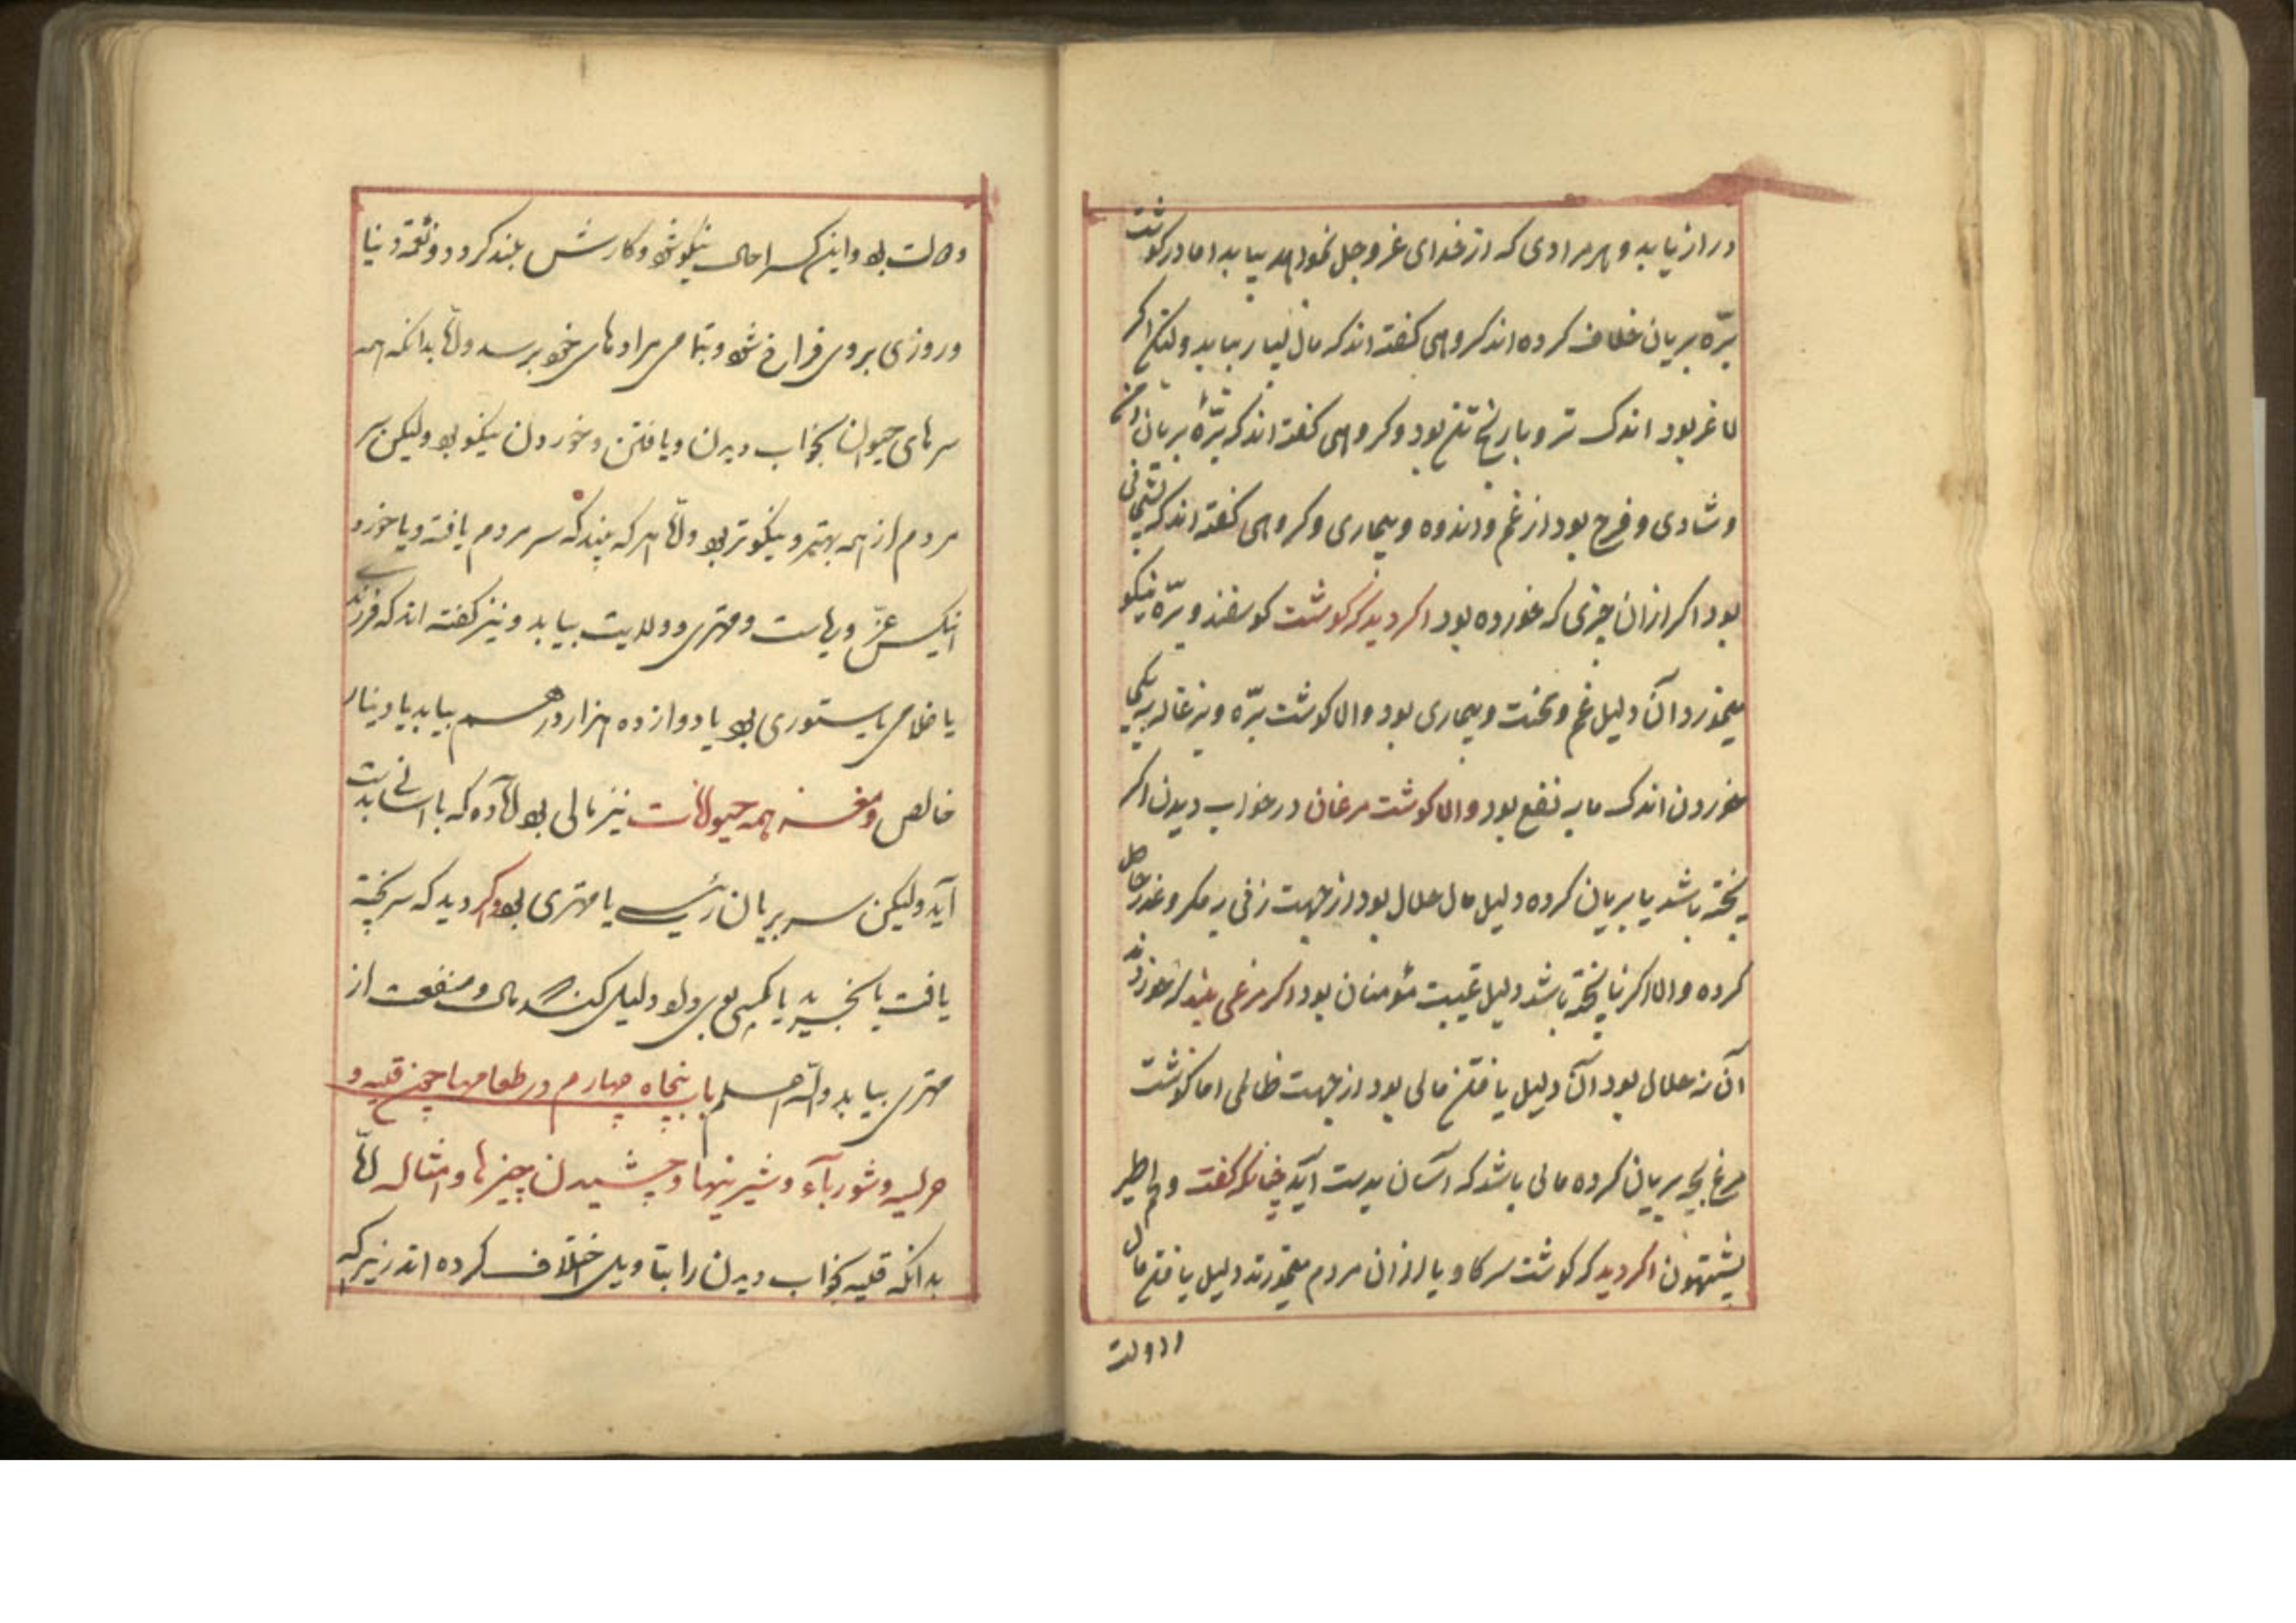 دراز یابد و هر مرادی که از خدای عز و جل خواهد بیابد اما در کوشت
برّه بریان خلاف کرده اند کروهی کفته اند که مال بسیار بیابد ولیکن اکر
لاغر بود اندک تر و با رنج تن بود و کروهی کفته اند که برّهٔ بریان
و شادی و فرح بود از غم و اندوه و بیماری و کروهی کفته اند که
بود اکر ازان چیزی که خورده بود اکر دید که کوشت کوسفند و برّه نیکو
میخورد آن دلیل غم و محنت و بیماری بود و اما کوشت برّه و بزغاله
خوردن اندک مایه نفع بود و اما کوشت مرغان در خواب دیدن اکر
پخته باشد یا بریان کرده دلیل مال حلال بود از جهت زنی به مکر و غدر حاصل
کرده و اما اکر ناپخته باشد دلیل غیبت مؤمنان بود اکر مرغی بیند که خوردن
آن نه حلال بود آن دلیل یافتن مالی بود از جهت ظالمی اما کوشت
مرغ بچه بریان کرده مالی باشد که آسان بدست آید چنانکه کفت و لحم طیر
یشتهون اکر دید که کوشت سر کاو یا از آن مردم میخورند دلیل یافتن مال
و دولت بود و اینکس را حال نیکو شود و کارش بلند کردد و نعمة دنیا
و روزی بر وی فراخ شود و بتمامی مرادهای خود برسد و امّا بدانکه همه
سرهای حیوان بخواب دیدن و یا فتن و خوردن نیکو بود ولیکن سر
مردم از همه بهتر و نیکوتر بود و امّا هر که بیند که سر مردم یافته و یا خورد
اینکس عزّ و و مهتری و ولایت بیابد و نیز کفته اند که فرزند
یا غلامی یا ستوری بود یا دوازده هزار درهم بیابد یا دینار
خالص و مغز همه حیوانات نیز مالی بود آماده که باسانی بدست
آید ولیکن سر بریان رئیسی یا مهتری بود و کر دید که سر پخته
یافت یا بخرید یا کسی بوی داد دلیل کند مال و منفعت از
مهتری بیابد والله اعلم باب پنجاه چهارم در طعامها چون قلیه و
هریسه و شورباء و شیرینیها و چشیدن چیزها و امثال انها
بدانکه قلیه بخواب دیدن را بتاویل اختلاف کرده اند زیرکه